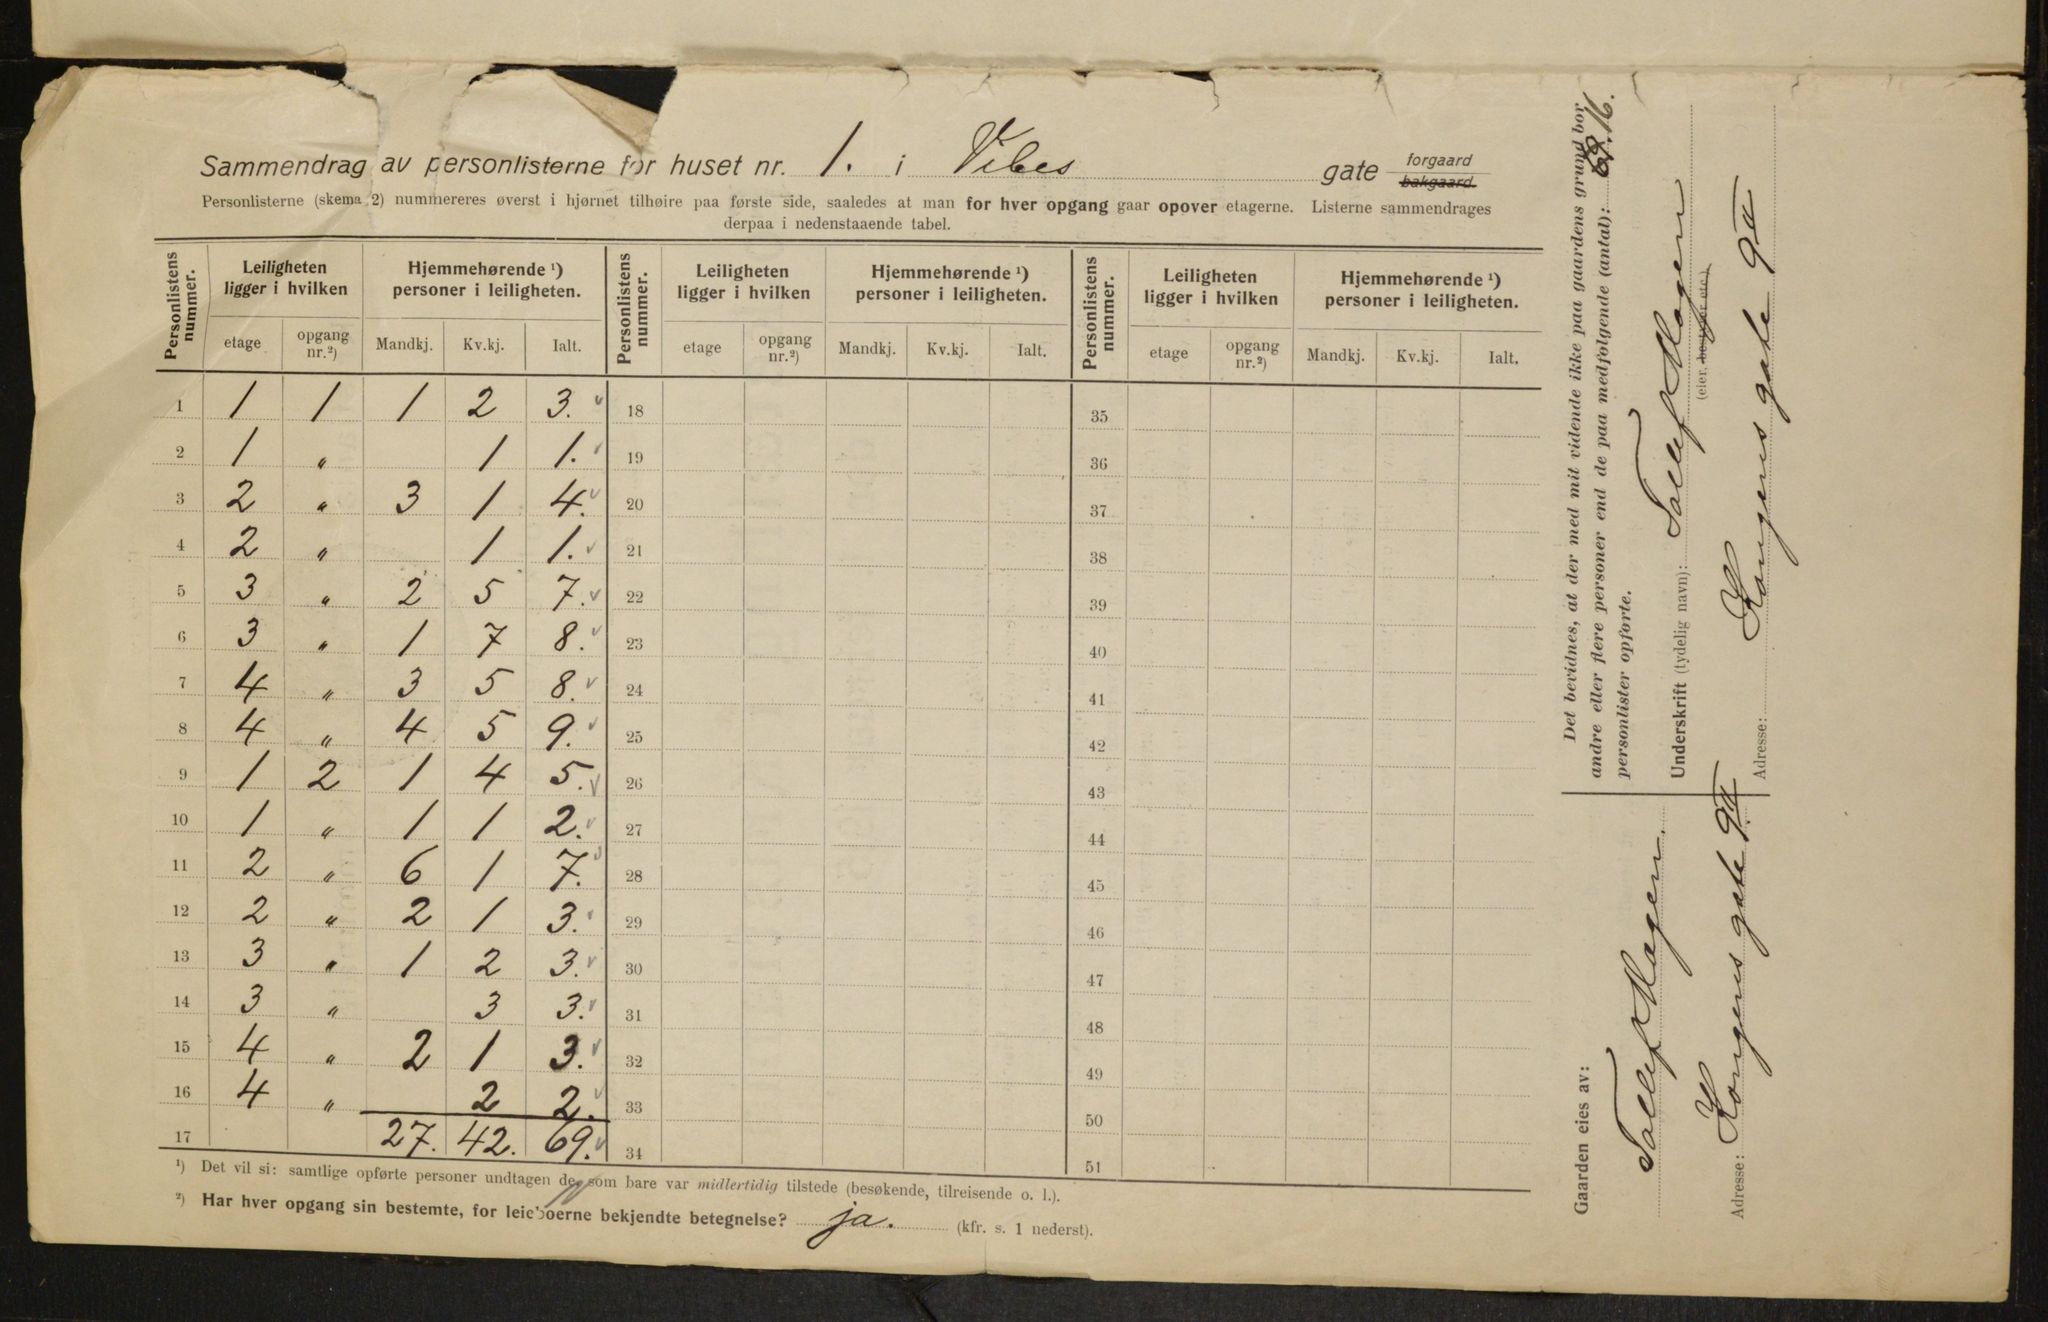 Sammendrag av personlisterne for huset nr. 1. i Vibes gate forgaard bakgaard.
Personlisterne (skema 2) nummereres øverst i hjørnet tilhøire paa første side, saaledes at man for hver opgang gaar opover etagerne. Listerne sammendrages
derpaa i nedenstaaende tabel.
Personlistens nummer. Leiligheten ligger i hvilken Hjemmehørende ¹) personer i leiligheten. Personlistens nummer. Leiligheten ligger i hvilken Hjemmehørende ¹) personer i leiligheten. Personlistens nummer. Leiligheten ligger i hvilken Hjemmehørende ¹) personer i leiligheten.
etage opgang nr.²) Mandkj. Kv.kj. Ialt. etage opgang nr.²) Mandkj. Kv.kj. Ialt. etage opgang nr.²) Mandkj. Kv.kj. Ialt.
1 1 1 1 2 3. 18 35
2 1 „ 1 1. 19 36
3 2 „ 3 1 4. 20 37
4 2 „ 1 1. 21 38
5 3 „ 2 5 7. 22 39
6 3 „ 1 7 8. 23 40
7 4 „ 3 5 8. 24 41
8 4 „ 4 5 9. 25 42
9 1 2 1 4 5. 26 43
10 1 „ 1 1 2. 27 44
11 2 „ 6 1 7. 28 45
12 2 „ 2 1 3. 29 46
13 3 „ 1 2 3. 30 47
14 3 „ 3 3. 31 48
15 4 „ 2 1 3. 32 49
16 4 „ 2 2. 33 50
17 27. 42. 69. 34 51
¹) Det vil si: samtlige opførte personer undtagen de som bare var midlertidig tilstede (besøkende, tilreisende o. l.).
²) Har hver opgang sin bestemte, for leieboerne bekjendte betegnelse? ja. (kfr. s. 1 nederst).
Det bevidnes, at der med mit vidende ikke paa gaardens grund bor
andre eller flere personer end de paa medfølgende (antal): 16.
personlister opførte.
Underskrift (tydelig navn): Tollef Mogen
(eier, bestyrer etc.)
Adresse: Kongens gate 9 II
Gaarden eies av:
Tollef Mogen.
Adresse: Kongens gate 9 II